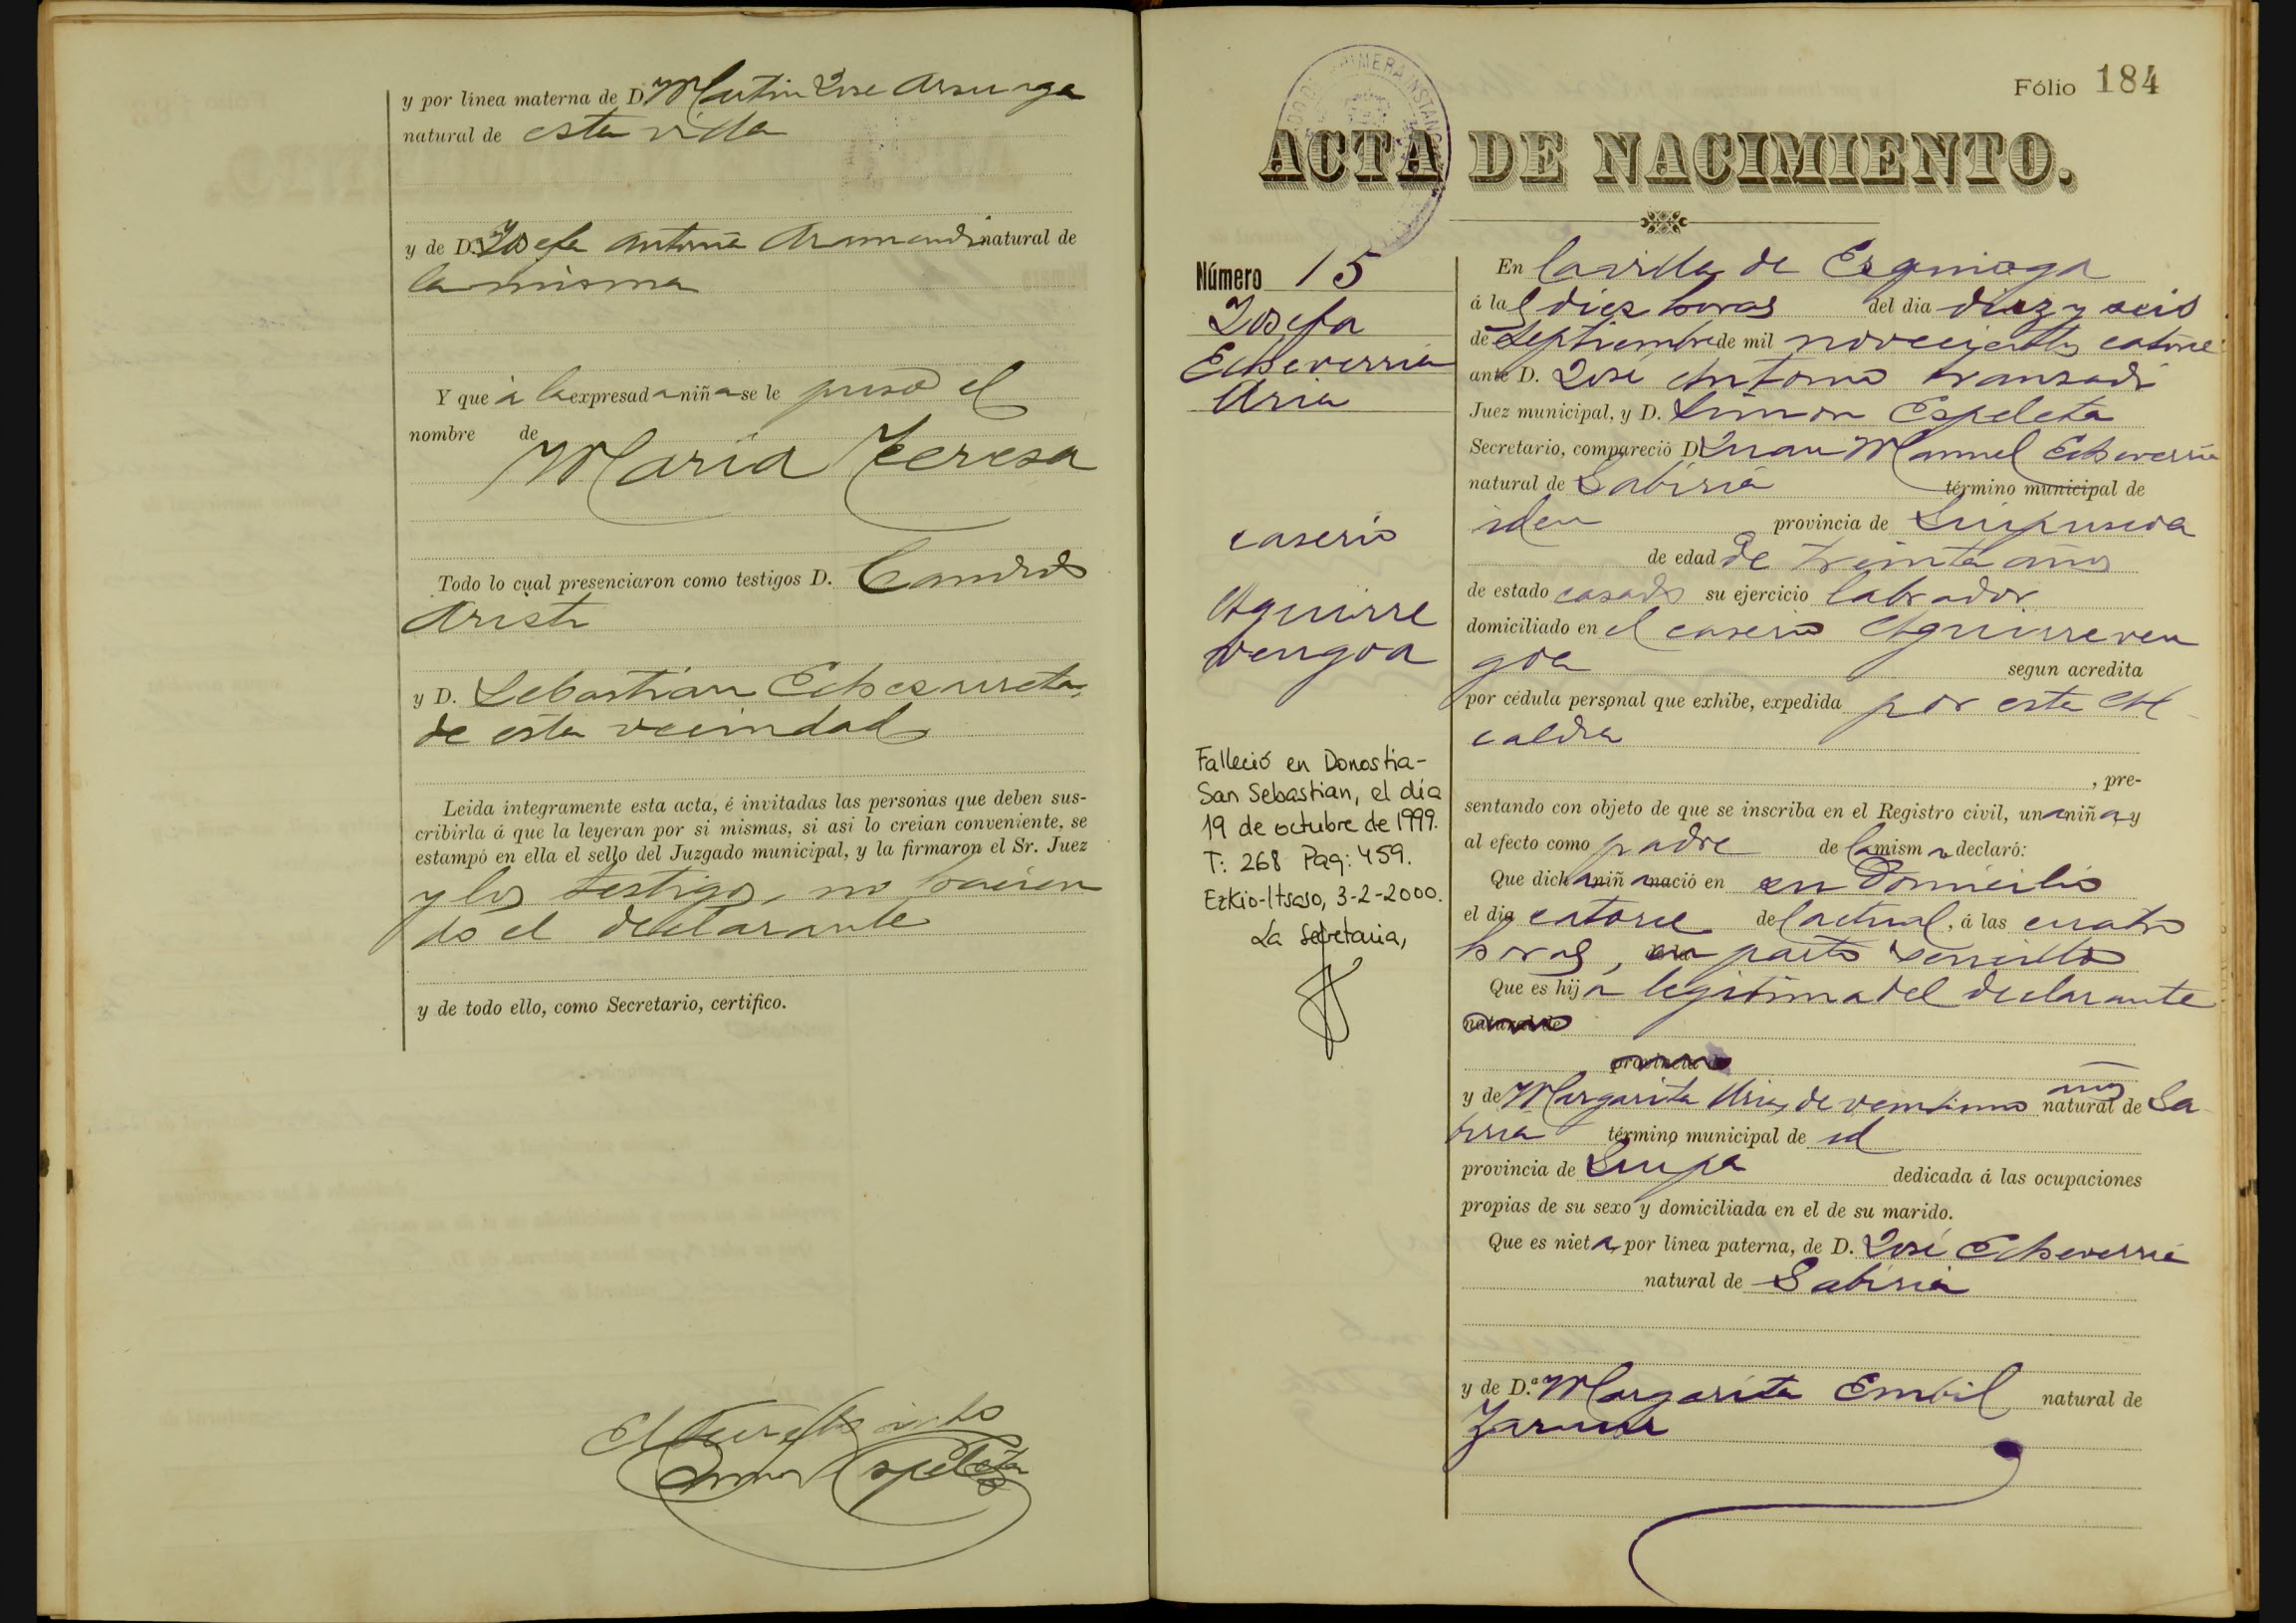 y por línea materna de D. Martin Jose Arsuaga
natural de esta villa
y de D.ª Josefa Antonia Aramendi natural de
la misma
Y que á la expresada niña se le puso el
nombre de
Maria Teresa
Todo lo cual presenciaron como testigos D.
Aristi
y D. Sebastian Echezarreta,
de esta vecindad
Leida íntegramente esta acta, é invitadas las personas que deben sus-
cribirla á que la leyeran por si mismas, si asi lo creian conveniente, se
estampó en ella el sello del Juzgado municipal, y la firmaron el Sr. Juez
y los testigos, no hacien
do el declarante
y de todo ello, como Secretario, certifico.
Simon Espeleta
Fólio 184
ACTA DE NACIMIENTO.
Número 15
Josefa
Echeverria
Aria
caserio
Aguirre
vengoa
Falleció en Donostia-
San Sebastian, el día
19 de octubre de 1999.
T: 268 Pag: 459.
Ezkio-Itsaso, 3-2-2000.
La Secretaria,
En la villa de Ezquioga
á las diez horas del dia diez y seis
de Septiembre de mil novecientos catorce
ante D. José Antonio Aranzadi
Juez municipal, y D. Simon Espeleta
Secretario, compareció D. Juan Manuel Echeverria
natural de Cabiria término municipal de
idem provincia de Guipuzcoa
de edad de treinta años
de estado casado su ejercicio labrador
domiciliado en el caserio Aguirreven
goa segun acredita
por cédula personal que exhibe, expedida por esta Al
caldia
, pre-
sentando con objeto de que se inscriba en el Registro civil, una niña y
al efecto como padre de la misma declaró:
Que dicha niña nació en su domicilio
el dia catorce del actual, á las cuatro
horas, en parto sencillo
Que es hija legitima del declarante
natural de
provincia de
y de Margarita Aria, de veintiuno años natural de Ga
biria término municipal de id
provincia de Guipa dedicada á las ocupaciones
propias de su sexo y domiciliada en el de su marido.
Que es nieta, por línea paterna, de D. José Echeverria
natural de Gabiria
y de D.ª Margarita Embil natural de
Zarauz